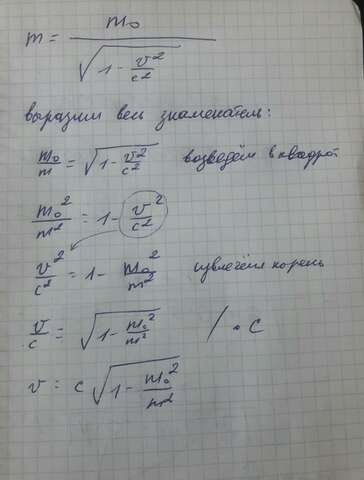 m = m₀ / √(1 - v²/c²)
выразим весь знаменатель:
m₀/m = √(1 - v²/c²) возведём в квадрат
m₀²/m² = 1 - v²/c²
v²/c² = 1 - m₀²/m² извлечём корень
v/c = √(1 - m₀²/m²) / · c
v = c √(1 - m₀²/m²)